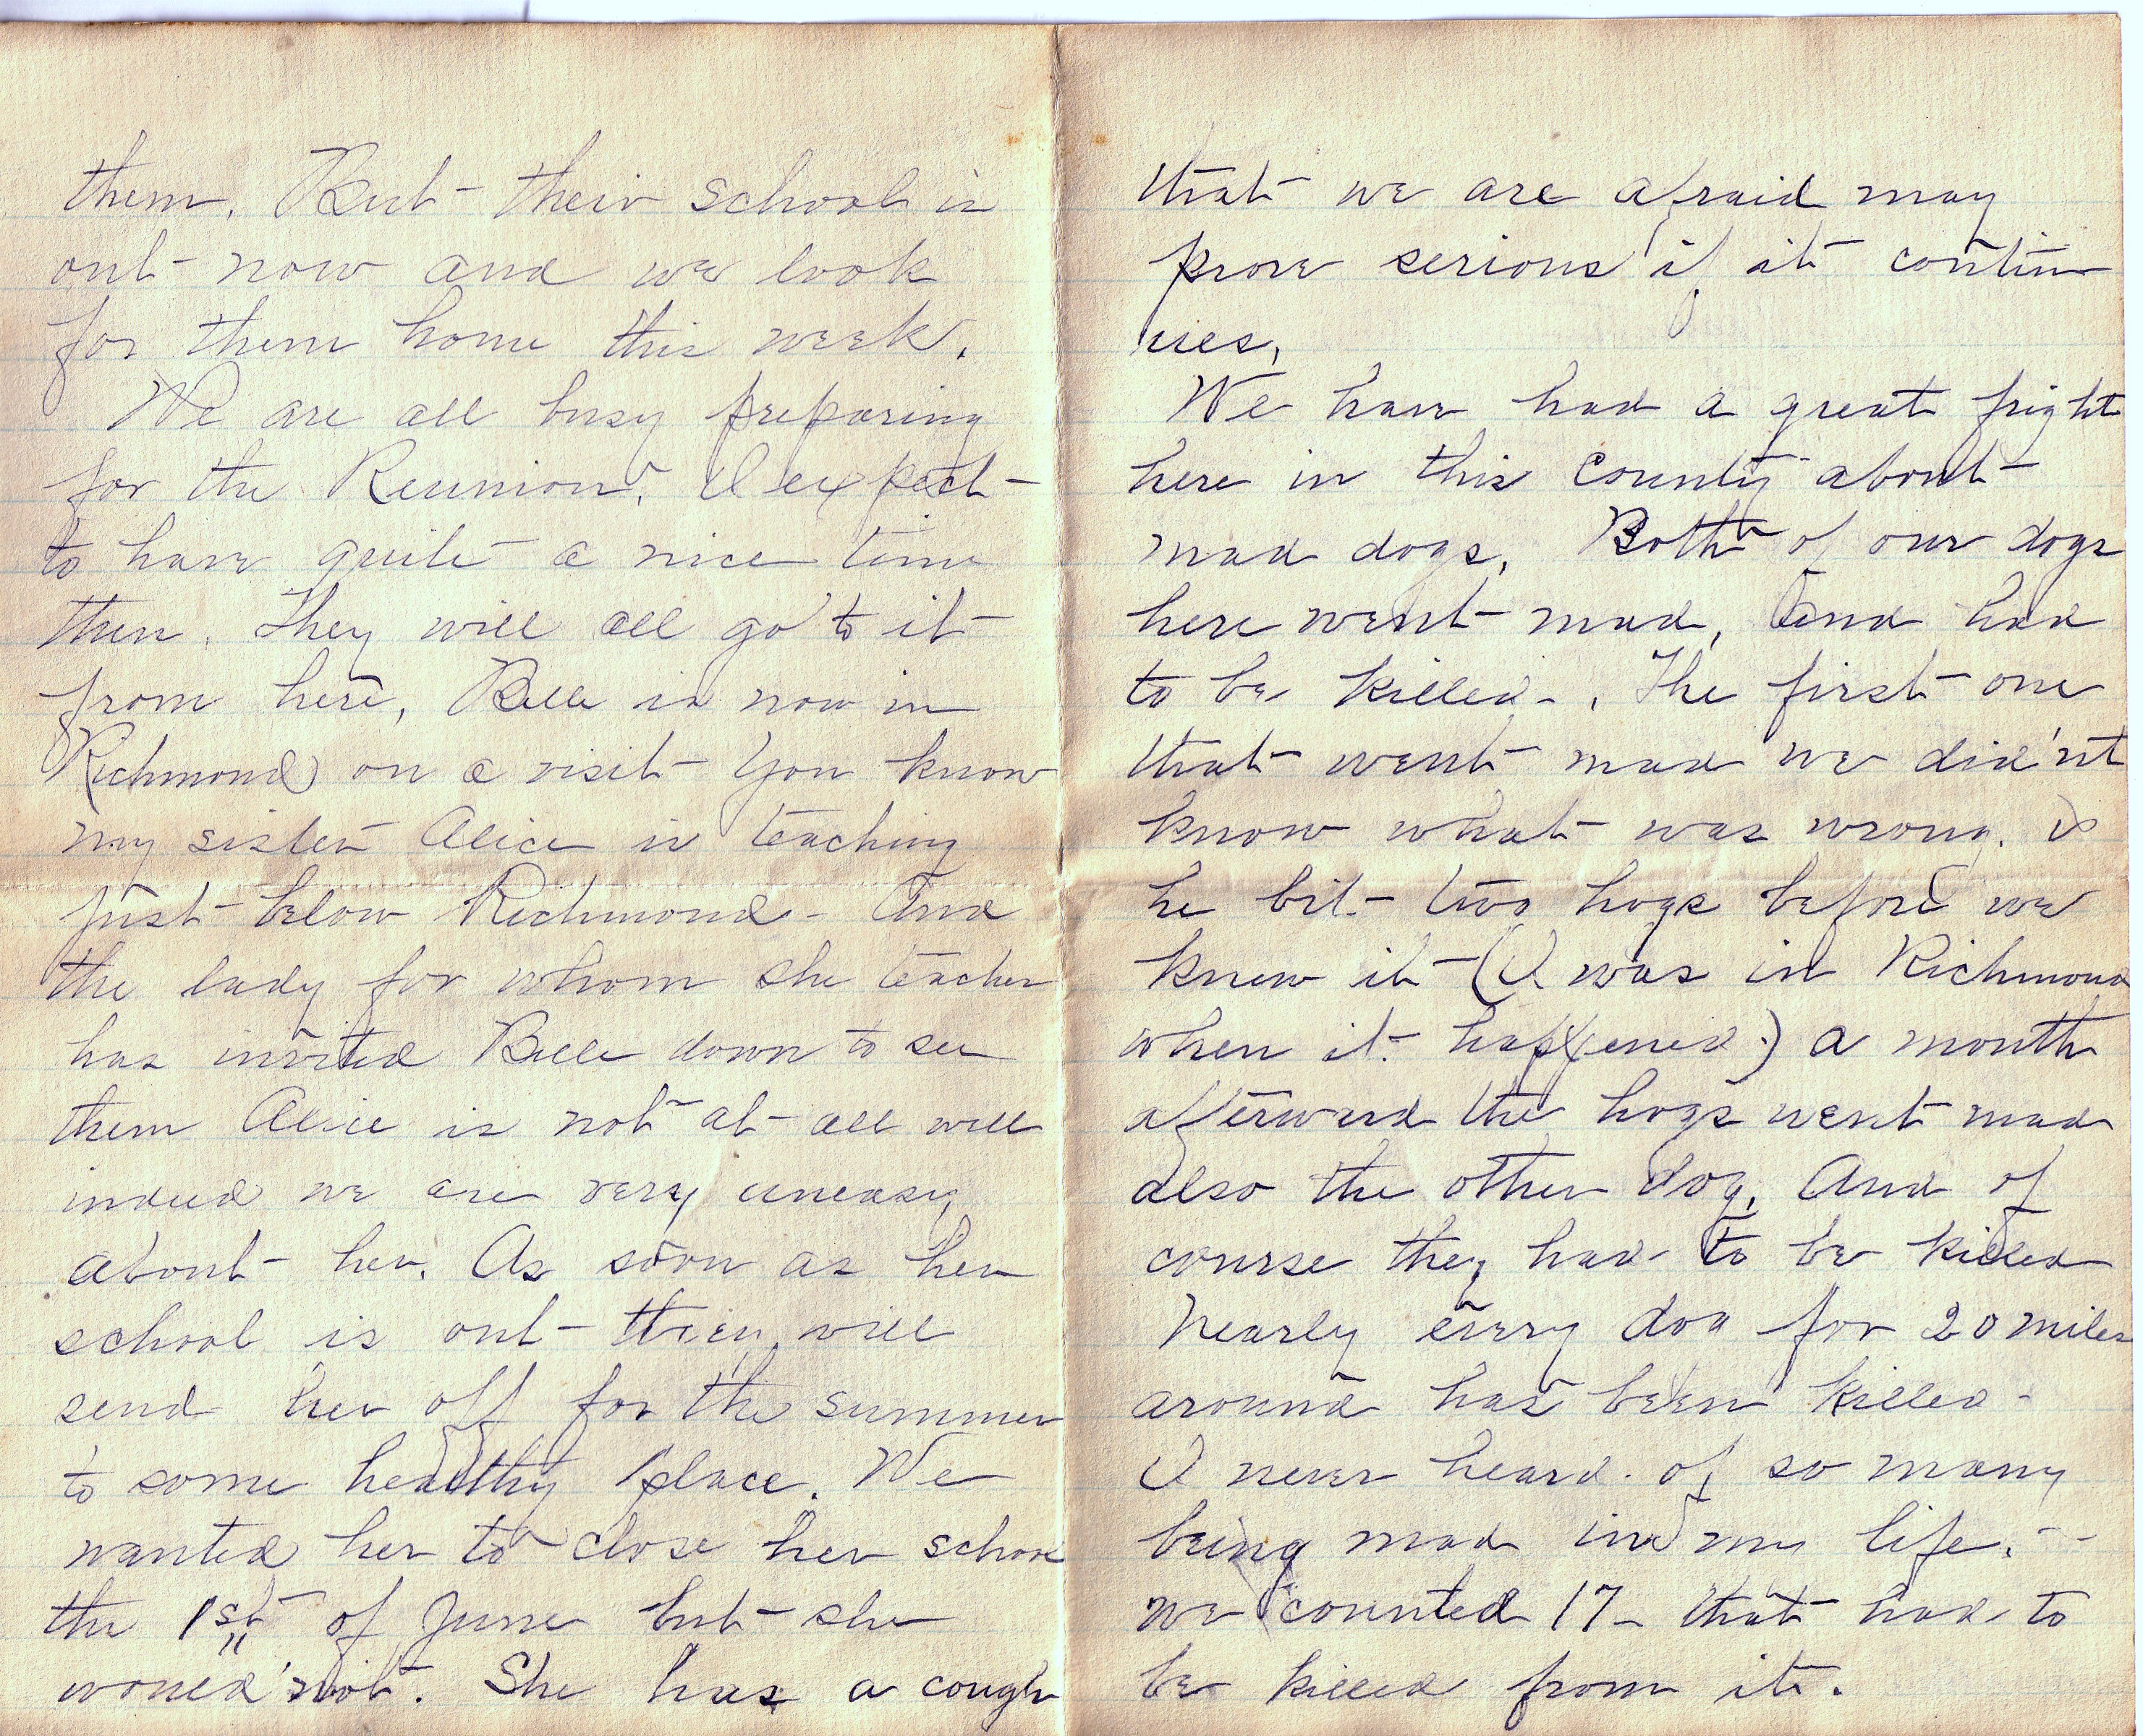 them. But their school is
out now and we look
for them home this week.
We are all busy preparing
for the Reunion. I expect
to have quite a nice time
then. They will all go to it
from here, Belle is now in
Richmond on a visit You know
my sister Alice is teaching
just below Richmond - And
the lady for whom she teaches
has invited Belle down to see
them Alice is not at all well
indeed we are very uneasy
about her. As soon as her
school is out they will
send her off for the summer
to some healthy place. We
wanted her to close her school
the 1st of June but she
would not. She has a cough
that we are afraid may
prove serious if it contin
ues.
We have had a great fright
here in this County about
mad dogs. Both of our dogs
here went mad, and had
to be killed. The first one
that went mad we did'nt
know what was wrong. &
he bit two hogs before we
knew it (I was in Richmond
when it happened.) a month
afterward the hogs went mad
also the other dog, And of
course they had to be killed
Nearly every dog for 20 miles
around has been killed -
I never heard of so many
being mad in my life. -
we counted 17 - that had to
be killed from it.